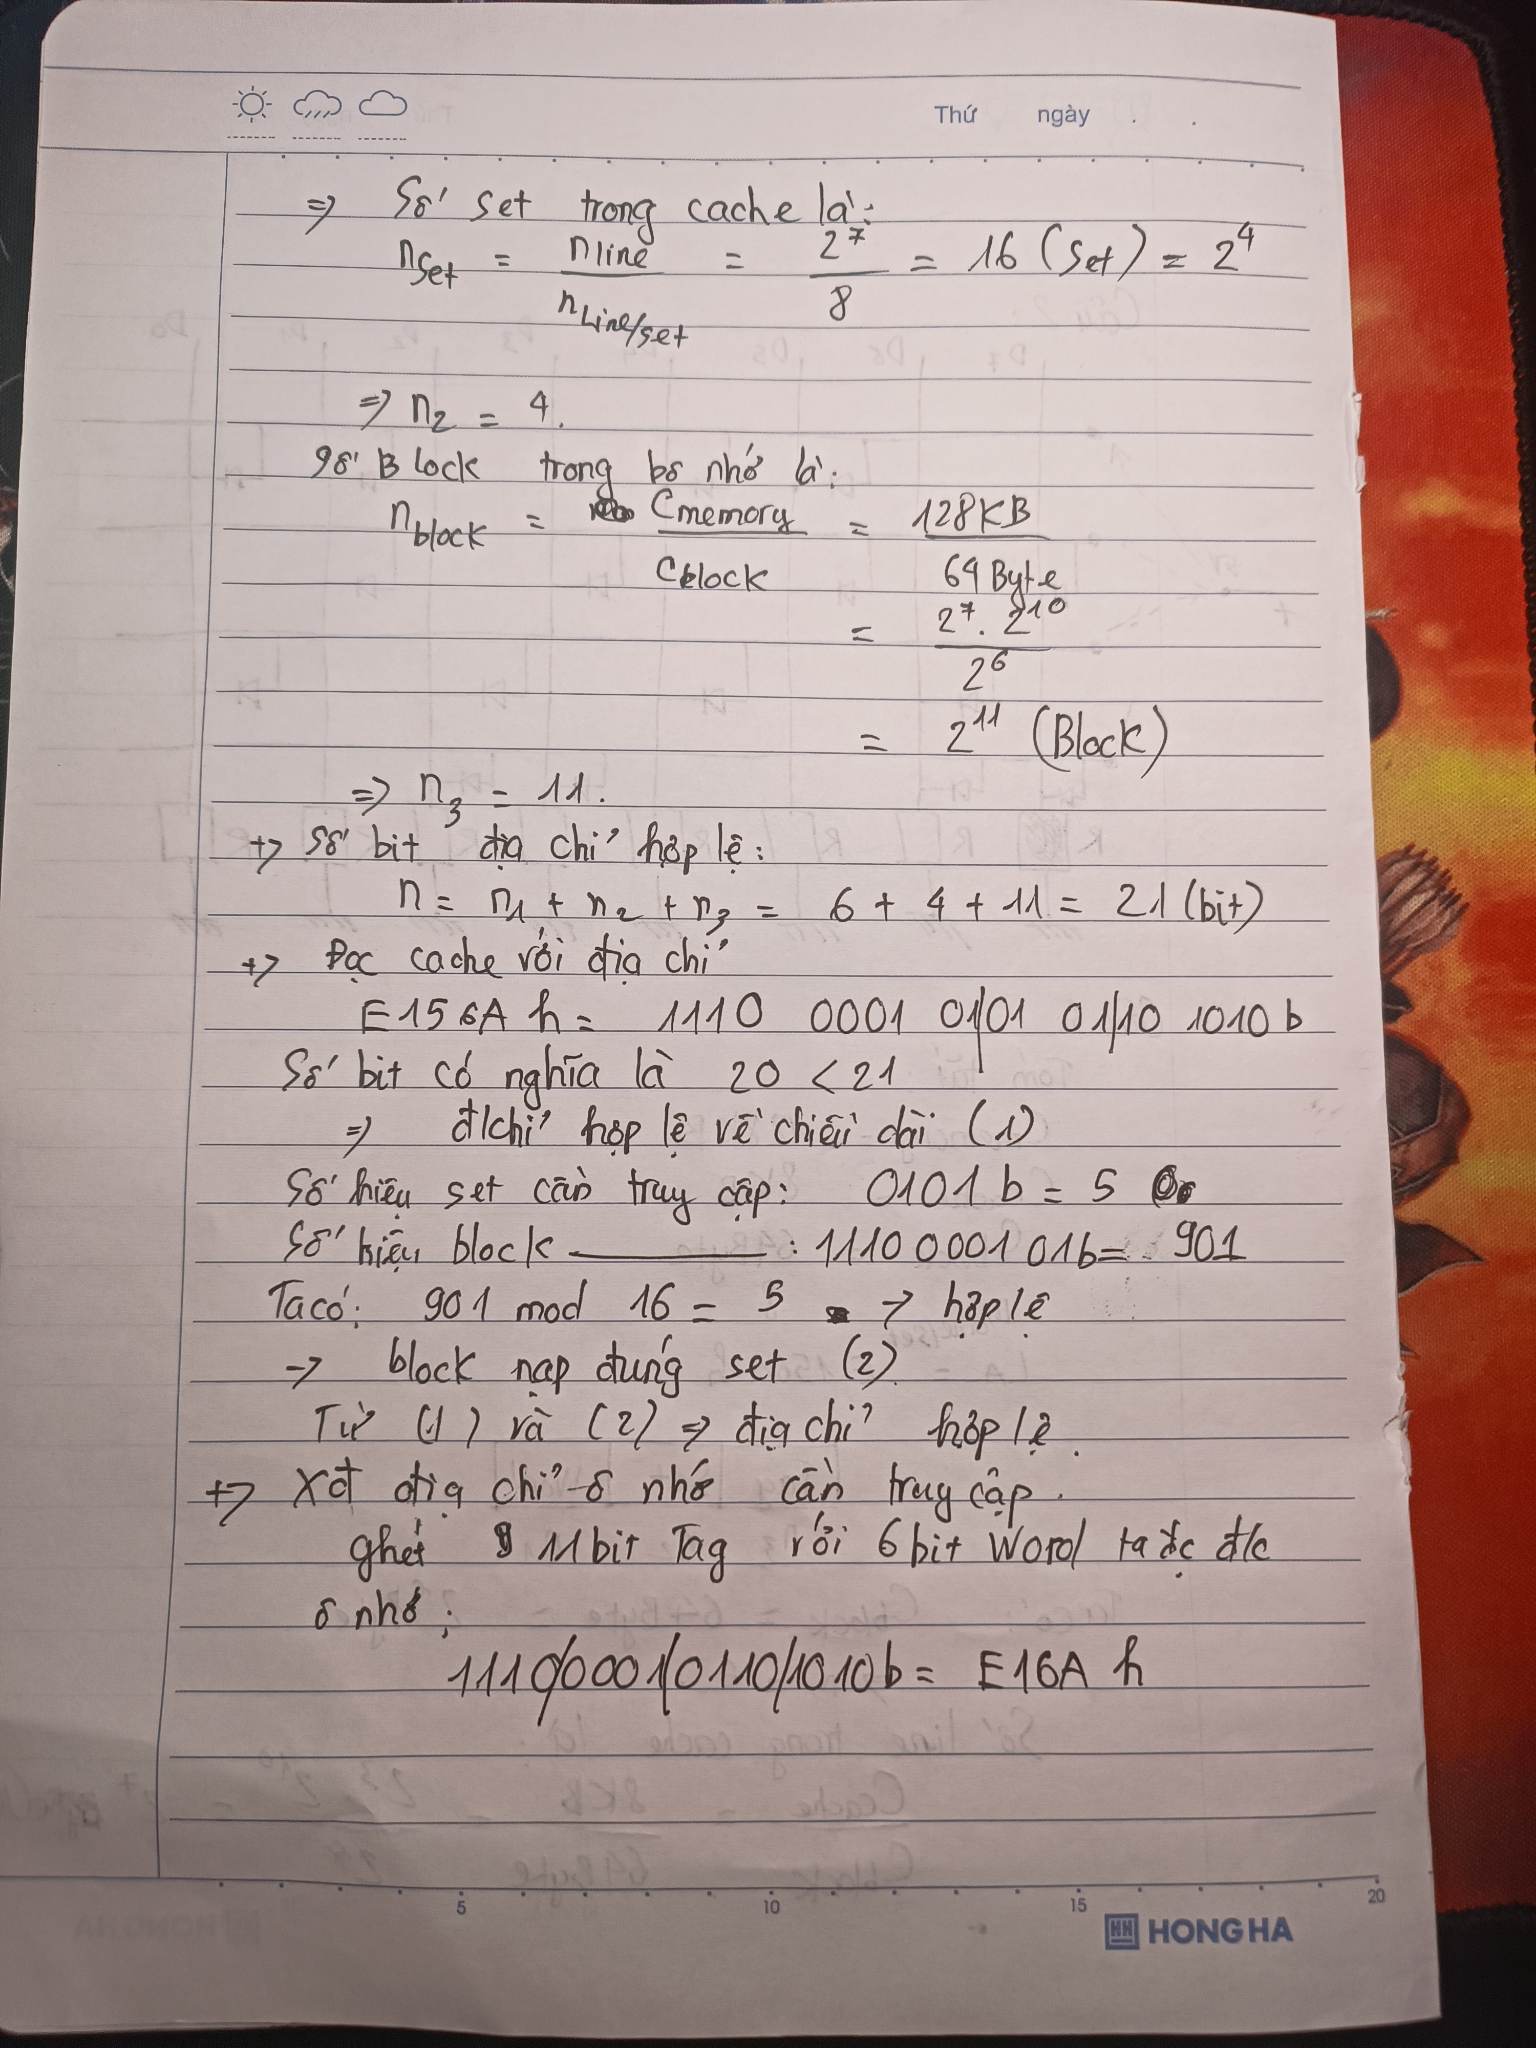 Thứ ngày . .
=> Số set trong cache là:
nset = nline / nLine/set = 2^7 / 8 = 16 (set) = 2^4
=> n2 = 4.
Số Block trong bộ nhớ là:
nblock = Cmemory / Cblock = 128KB / 64 Byte
= 2^7 . 2^10 / 2^6
= 2^11 (Block)
=> n3 = 11.
+> Số bit địa chỉ hợp lệ:
n = n1 + n2 + n3 = 6 + 4 + 11 = 21 (bit)
+> Đọc cache với địa chỉ
E156A h = 1110 0001 01/01 01/10 1010 b
Số bit có nghĩa là 20 < 21
=> đ/chỉ hợp lệ về chiều dài (1)
Số hiệu set cần truy cập: 0101 b = 5
Số hiệu block ——— : 1110 0001 01b = 901
Ta có: 901 mod 16 = 5 -> hợp lệ
-> block nạp đúng set (2)
Từ (1) và (2) => địa chỉ hợp lệ.
+> Xđ địa chỉ ô nhớ cần truy cập.
ghét 11 bit Tag với 6 bit Word ta đc đ/c
ô nhớ:
1110/0001/0110/1010 b = E16A h
5 10 15 20
HH HONG HA